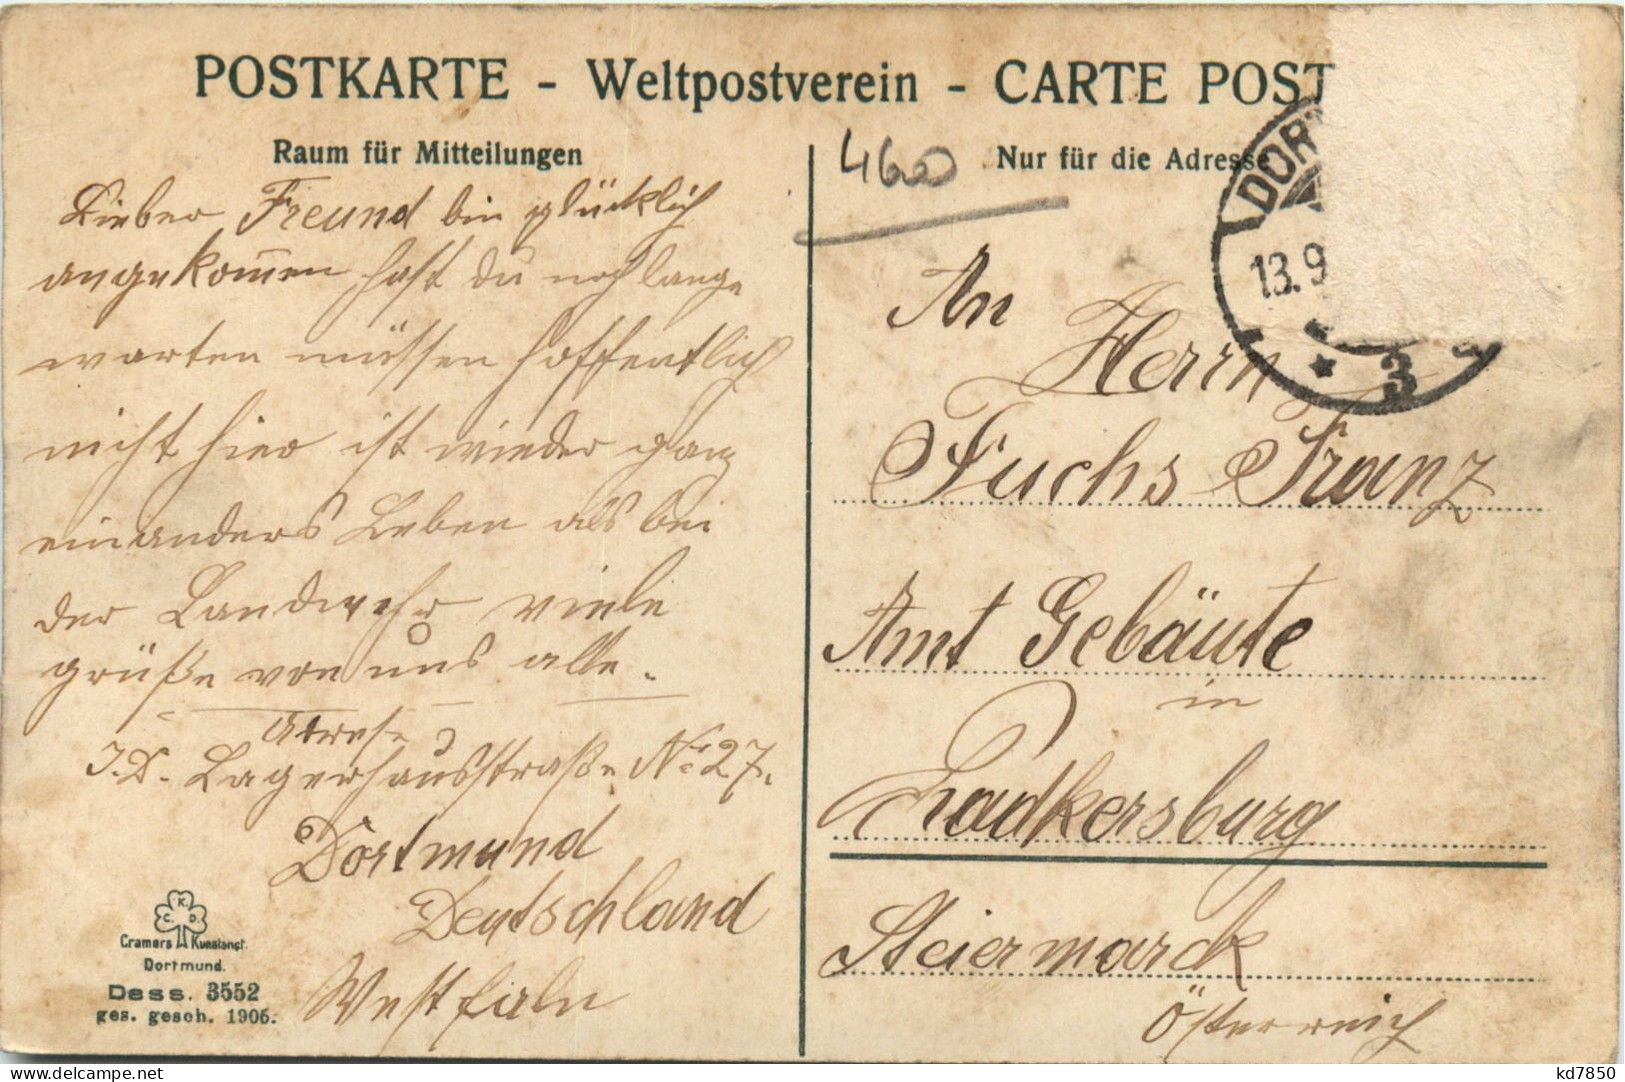 POSTKARTE - Weltpostverein - CARTE POST
Raum für Mitteilungen
Lieber Freund bin glücklich
angekommen hast du noch lange
warten müssen hoffentlich
nicht hier ist wieder ganz
ein anders Leben als bei
der Landwehr viele
grüße von uns alle.
Adresse
J.D. Lagerhausstraße No 27.
Dortmund
Deutschland
Westfaln
K
C. D.
Cramers Kunstanst.
Dortmund.
Dess. 3552
ges. gesch. 1906.
460
Nur für die Adresse
DOR
13.9
* 3
An
Herrn
Fuchs Franz
Amt Gebäute
in
Radkersburg
Steiermarck
Österreich
kd7850